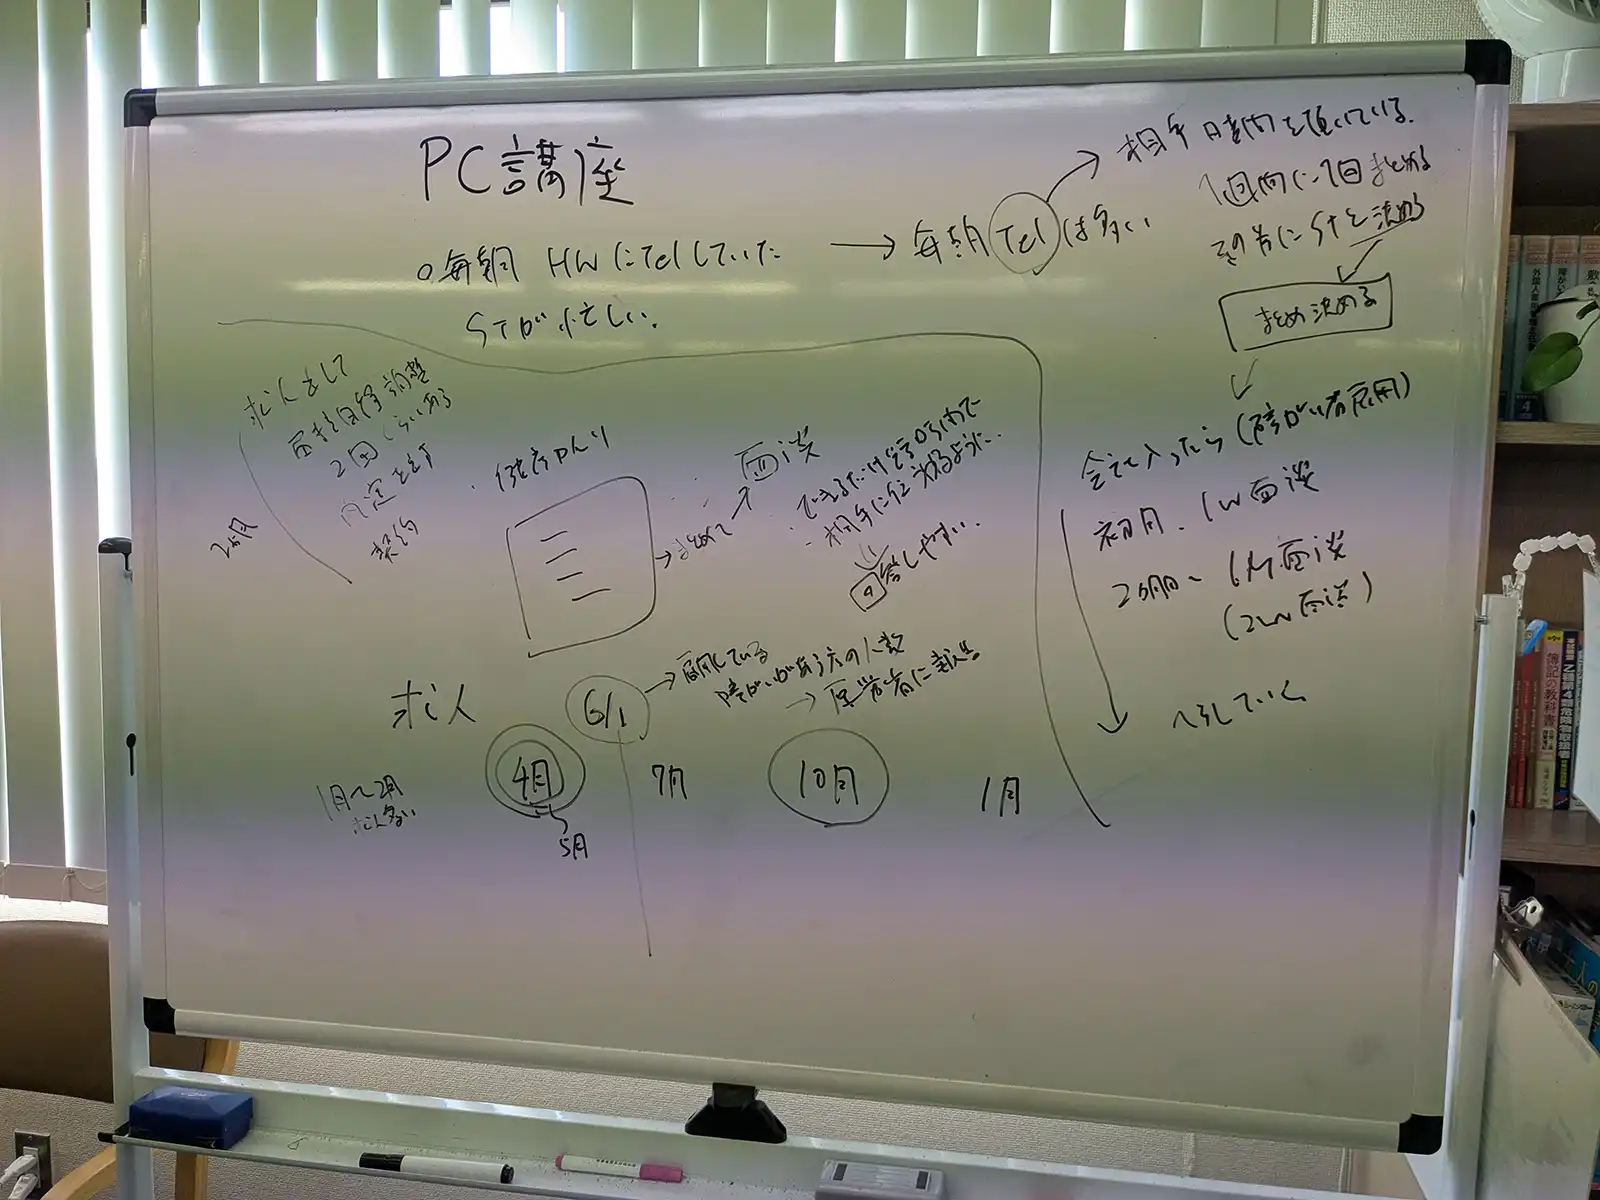 PC講座
○毎朝 HWにtelしていた
→ 毎朝 Telは多い
STが忙しい。
→ 相手 時間を頂いている。
1週間に1回まとめる
その為にSTと決める
まとめ決める
会社入ったら(障がい者雇用)
初月、1W面談
2ヶ月〜 1M面談
(2W面談)
へらしていく
求人をして
面接日程調整
2回くらいある
内定をだす
契約
2ヶ月
→まとめて→
面談
・できるだけ
・相手に伝わるように、
回答しやすい。
求人
6/1
→雇用している
障がいがある方の人数
→厚労省に報告
1月〜2月
求人多い
4月
5月
7月
10月
1月
外国人雇用
簿記の教科書
乙種第4類危険物取扱者